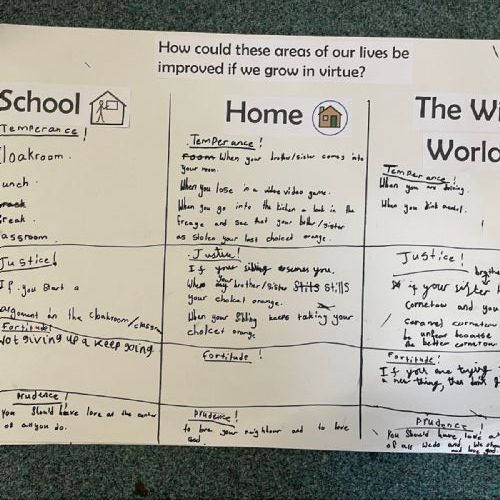 How could these areas of our lives be
improved if we grow in virtue?
School
Temperance!
Cloakroom.
Lunch.
Break.
Classroom.
Justice!
If you start a
argument in the cloakroom/classroom
Fortitude!
Not giving up & keep going
Prudence!
You should have love at the center
of all you do.
Home
Temperance!
room When your brother/sister comes into
your room.
When you lose in a video video game.
When you go into the kitchen & look in the
freage and see that your brother/sister
as stolen your last choclet orange.
Justice!
If your sibling you.
When your brother/sister stills
your choklat orange.
When your sibling keeps taking your
cholcet orange
Fortitude!
Prudence!
to love your neighbour and to love
God
The Wi
World
Temperance!
When you are driving.
When you drink
Justice!
if your sister
cornetow and you
Caramel cornetow
be unfair because
the better cornetow
Fortitude!
If you are trying
a new thing, then don't
Prudence!
You should have love
of all We do and